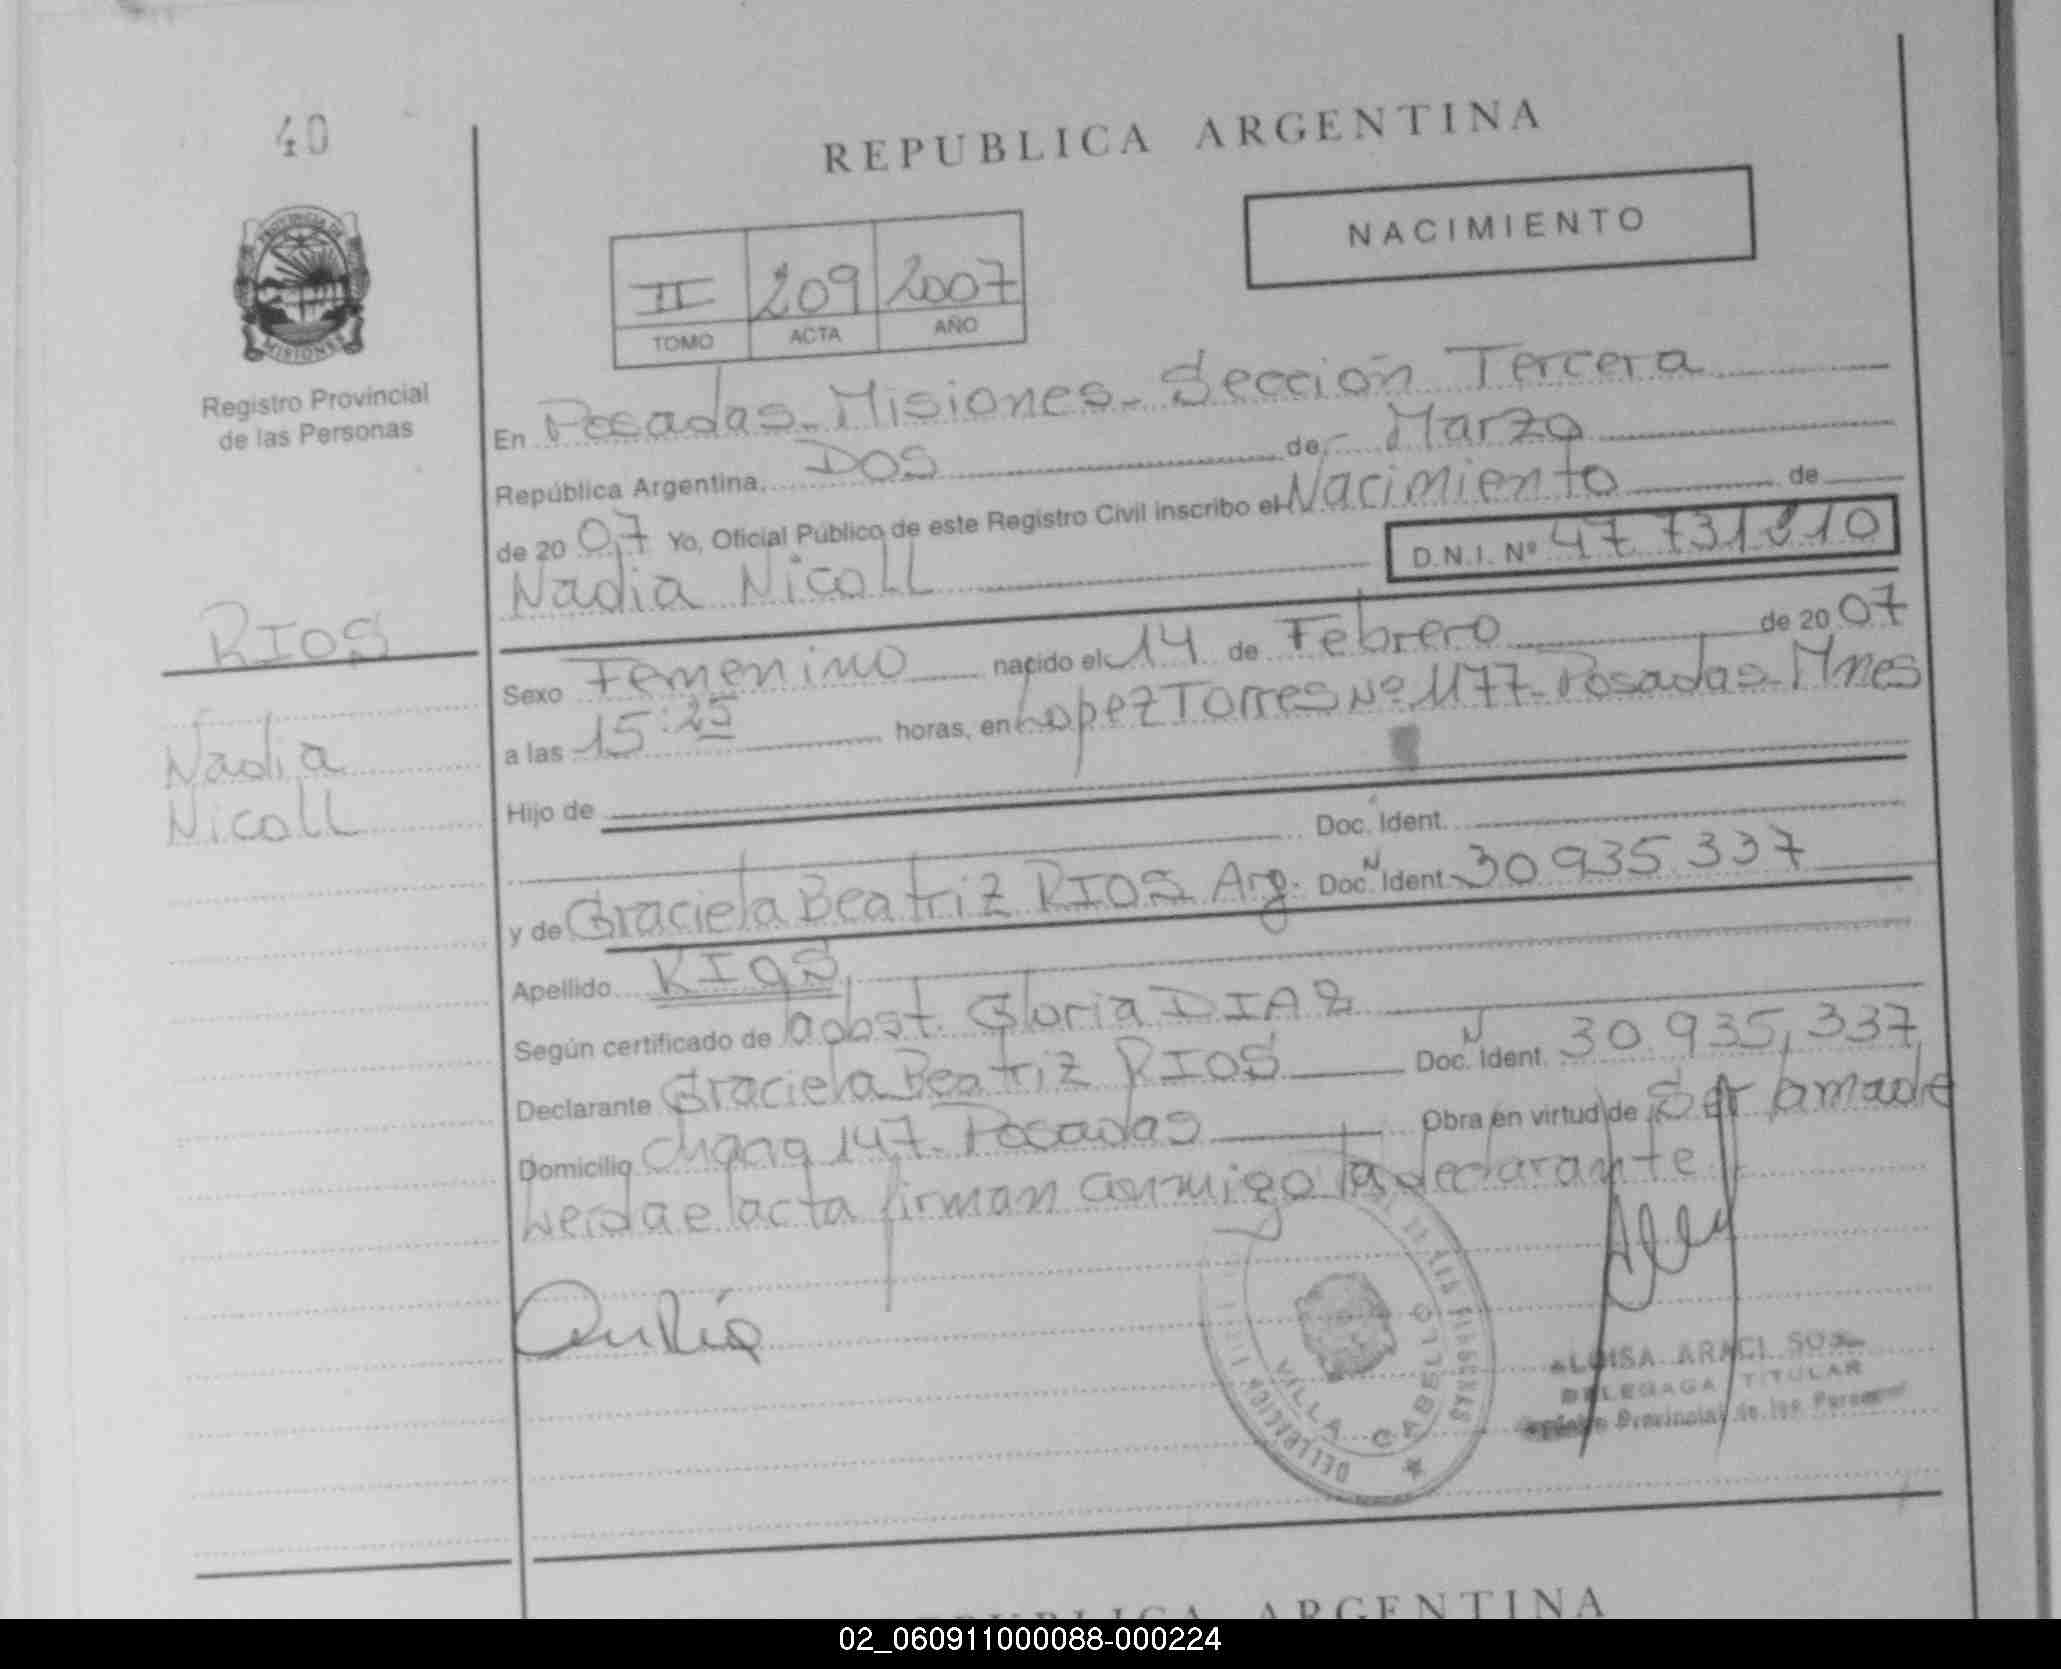 40
REPUBLICA ARGENTINA
NACIMIENTO
II 209 2007
TOMO ACTA AÑO
PROVINCIA DE
MISIONES
Registro Provincial
de las Personas
En Posadas - Misiones - Sección Tercera
República Argentina, Dos de Marzo
de 2007 Yo, Oficial Público de este Registro Civil inscribo el Nacimiento de
Nadia Nicoll D.N.I. Nº 47 731 210
RIOS
Nadia
Nicoll
Sexo Femenino nacido el 14 de Febrero de 2007
a las 15:25 horas, en Lopez Torres Nº 1177 - Posadas - Mnes
Hijo de
Doc. Ident.
y de Graciela Beatriz RIOS Arg. Doc. Ident. 30 935 337
Apellido RIOS
Según certificado de obst. Gloria DIAZ
Declarante Graciela Beatriz RIOS Doc. Ident. 30.935,337
Domicilio 147 - Posadas Obra en virtud de Ser la madre
Leida el acta firman conmigo la declarante
VILLA CABELLO
LUISA ARACI
DELEGADA TITULAR
Provincial de las
REPUBLICA ARGENTINA
02_060911000088-000224